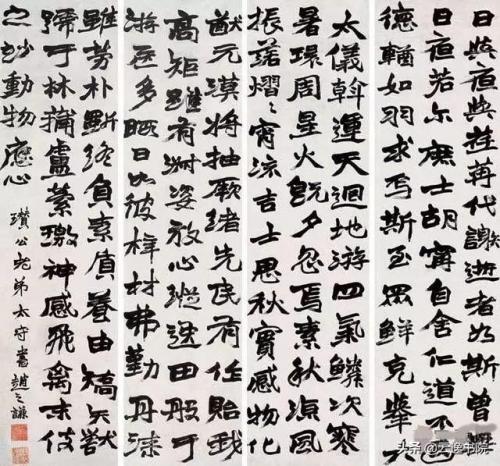 日與夜與荏苒代謝逝者如斯曾無
日夜若尔庶士胡寧自舍仁道不
德輶如羽求焉斯至眾鮮克舉大
太儀斡運天迴地游四氣鱗次寒
暑環周星火既夕忽焉素秋涼風
振落熠〻宵流吉士思秋實感物化
猷元漠將抽厥緒先民有作貽我
高矩雖有淑姿放心縱逸田般于
游居多暇日如彼梓材弗勤丹漆
雖勞朴斲終負素質養由矯矢獸
號于林蒲盧縈繳神感飛禽末伎
之妙動物應心
瓚公老弟太守書 趙之謙
头条@云逸书院